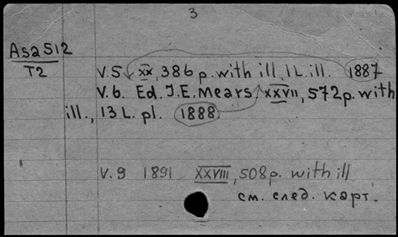 3
Asa512
T2
V.5 xx, 386 p. with ill, 1 L. ill. 1887
V.6. Ed. J.E. Mears xxvii, 572 p. with
ill., 13 L. pl. 1888
V.9 1891 xxviii, 508 p. with ill
см. след. карт.